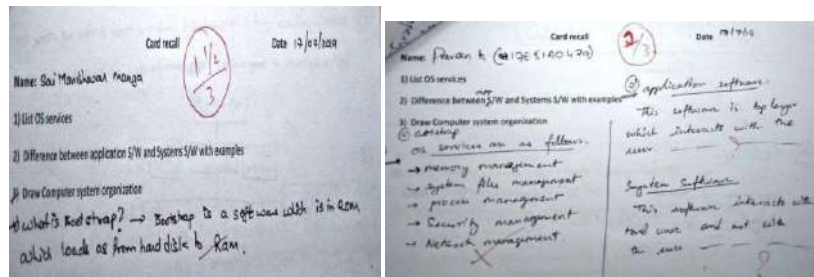 Card recall
Date 17/02/2019
1 1/2
3
Name: Sai Manthawar Manga
1) List OS services
2) Difference between application S/W and Systems S/W with examples
3) Draw Computer system organization
what is Bootstrap? → Bootstrap is a software which is in Rom
which loads os from hard disk to Ram.
Card recall
2/3
Date
Name:
1) List OS services
2) Difference between S/W and Systems S/W with examples
app
3) Draw Computer system organization
OS services are as follows.
→ memory management
→ system files management
→ process management
→ Security management
→ Network management.
application software.
This software is top layer
which interacts with the
user
System Software
This software interacts with
hard ware and not with
the user